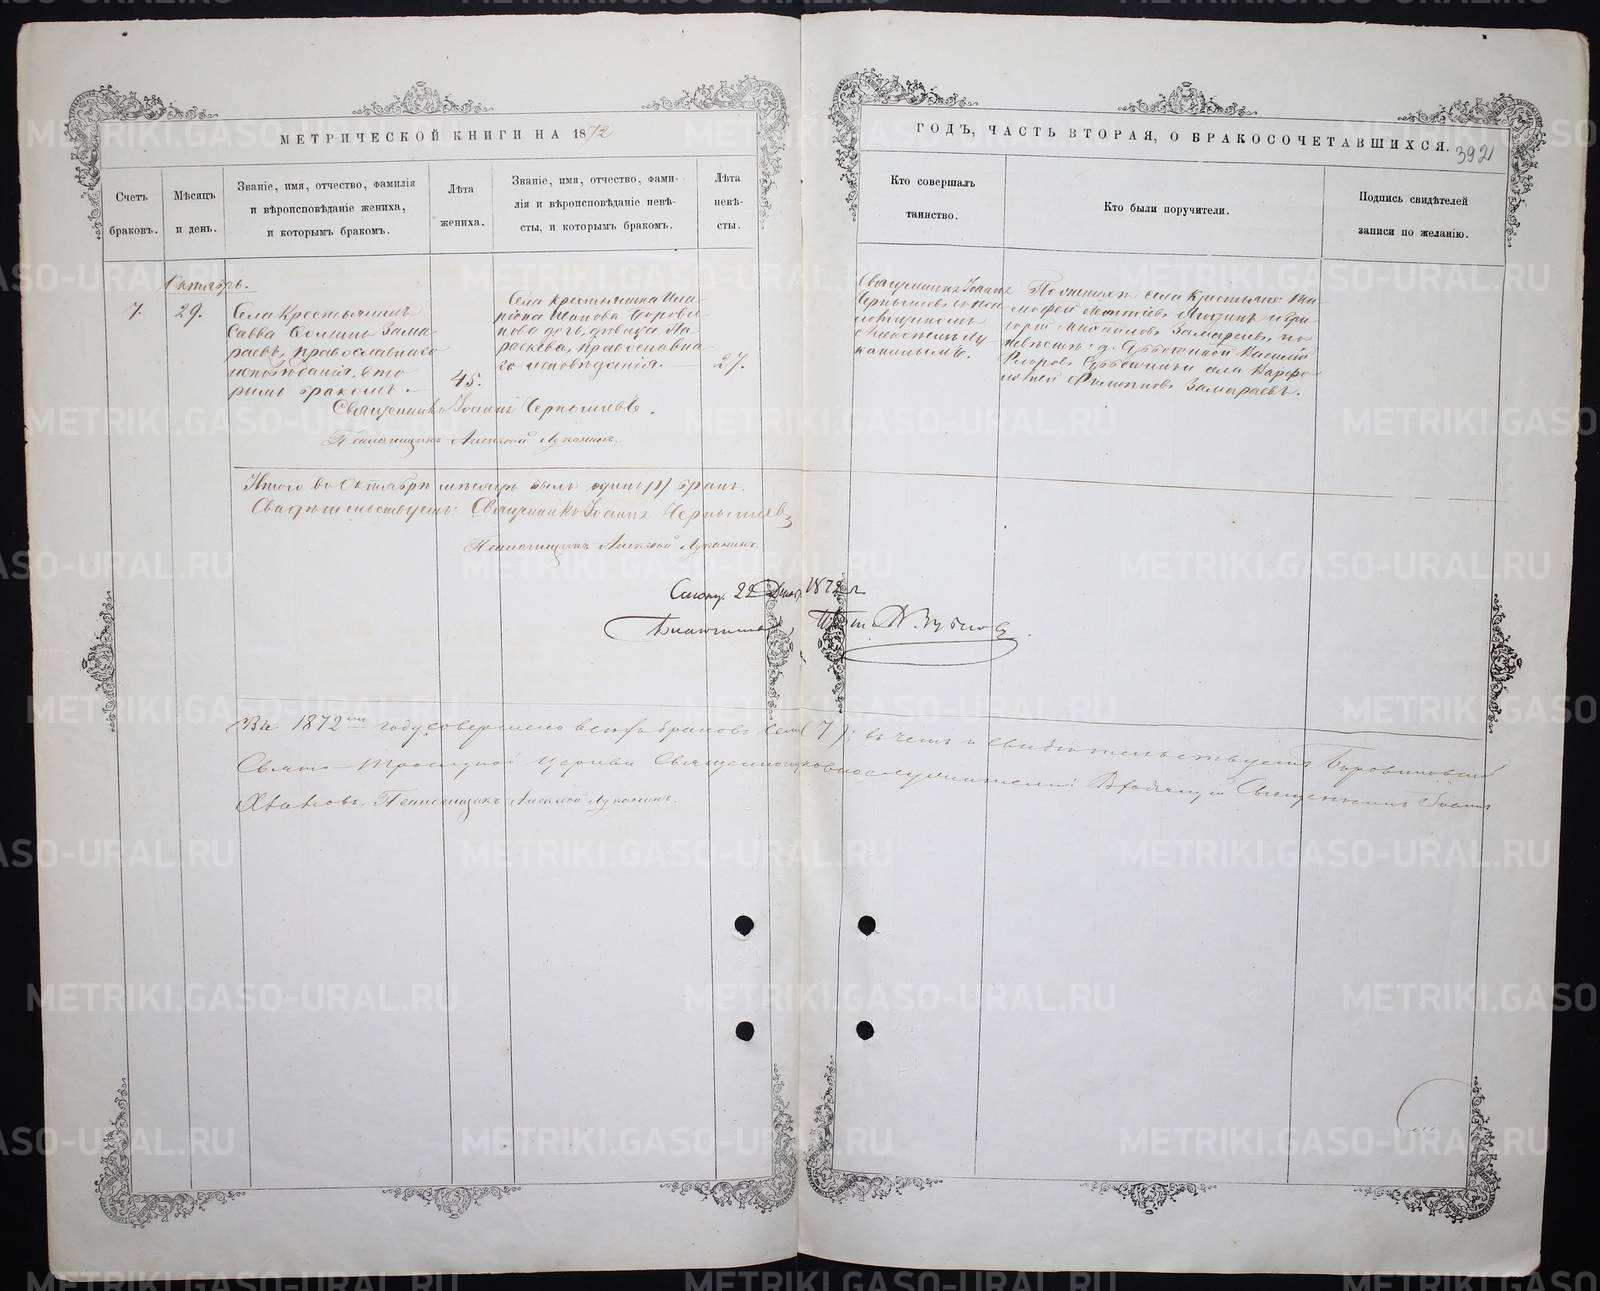 МЕТРИЧЕСКОЙ КНИГИ НА 1872
ГОДЪ, ЧАСТЬ ВТОРАЯ, О БРАКОСОЧЕТАВШИХСЯ.
392
Счетъ
браковъ.
Мѣсяцъ
и день.
Званіе, имя, отчество, фамилія
и вѣроисповѣданіе жениха,
и которымъ бракомъ.
Лѣта
жениха.
Званіе, имя, отчество, фами-
лія и вѣроисповѣданіе невѣ-
сты, и которымъ бракомъ.
Лѣта
невѣ-
сты.
Кто совершалъ
таинство.
Кто были поручители.
Подпись свидѣтелей
записи по желанію.
Октябрь.
7.
29.
Села Крестьянинъ
Савва Зама
раевъ, православнаго
исповѣданія, вто
рымъ бракомъ.
45.
Села крестьянина Ила
ріона Иванова Борови
кова дочь, дѣвица Па
раскева, православна
го исповѣданія.
27.
Священникъ Іоаннъ
Чернышевъ съ пса
ломщикомъ
Алексѣемъ Лу
канинымъ.
По женихѣ: села Крестьяне Ти
мофей и Гри
горій Михайловъ Замараевъ, по
невѣстѣ: д. Василій
села Варфо
ломей Филипповъ Замараевъ.
Священникъ Іоаннъ Чернышевъ.
Псаломщикъ Алексѣй Луканинъ.
Итого въ Октябрѣ мѣсяцѣ былъ одинъ (1) бракъ.
Свидѣтельствуетъ: Священникъ Іоаннъ Чернышевъ
Псаломщикъ Алексѣй Луканинъ.
22 Декаб. 1872 г.
Благочинный, Прот. Зубковъ
Въ 1872 году совершено всѣхъ браковъ семь (7); въ чемъ и свидѣтельствуетъ Боровиковской
Свято-Троицкой Церкви Священно-церковнослужители: Священникъ Іоаннъ
Псаломщикъ Алексѣй Луканинъ.
METRIKI.GASO-URAL.RU